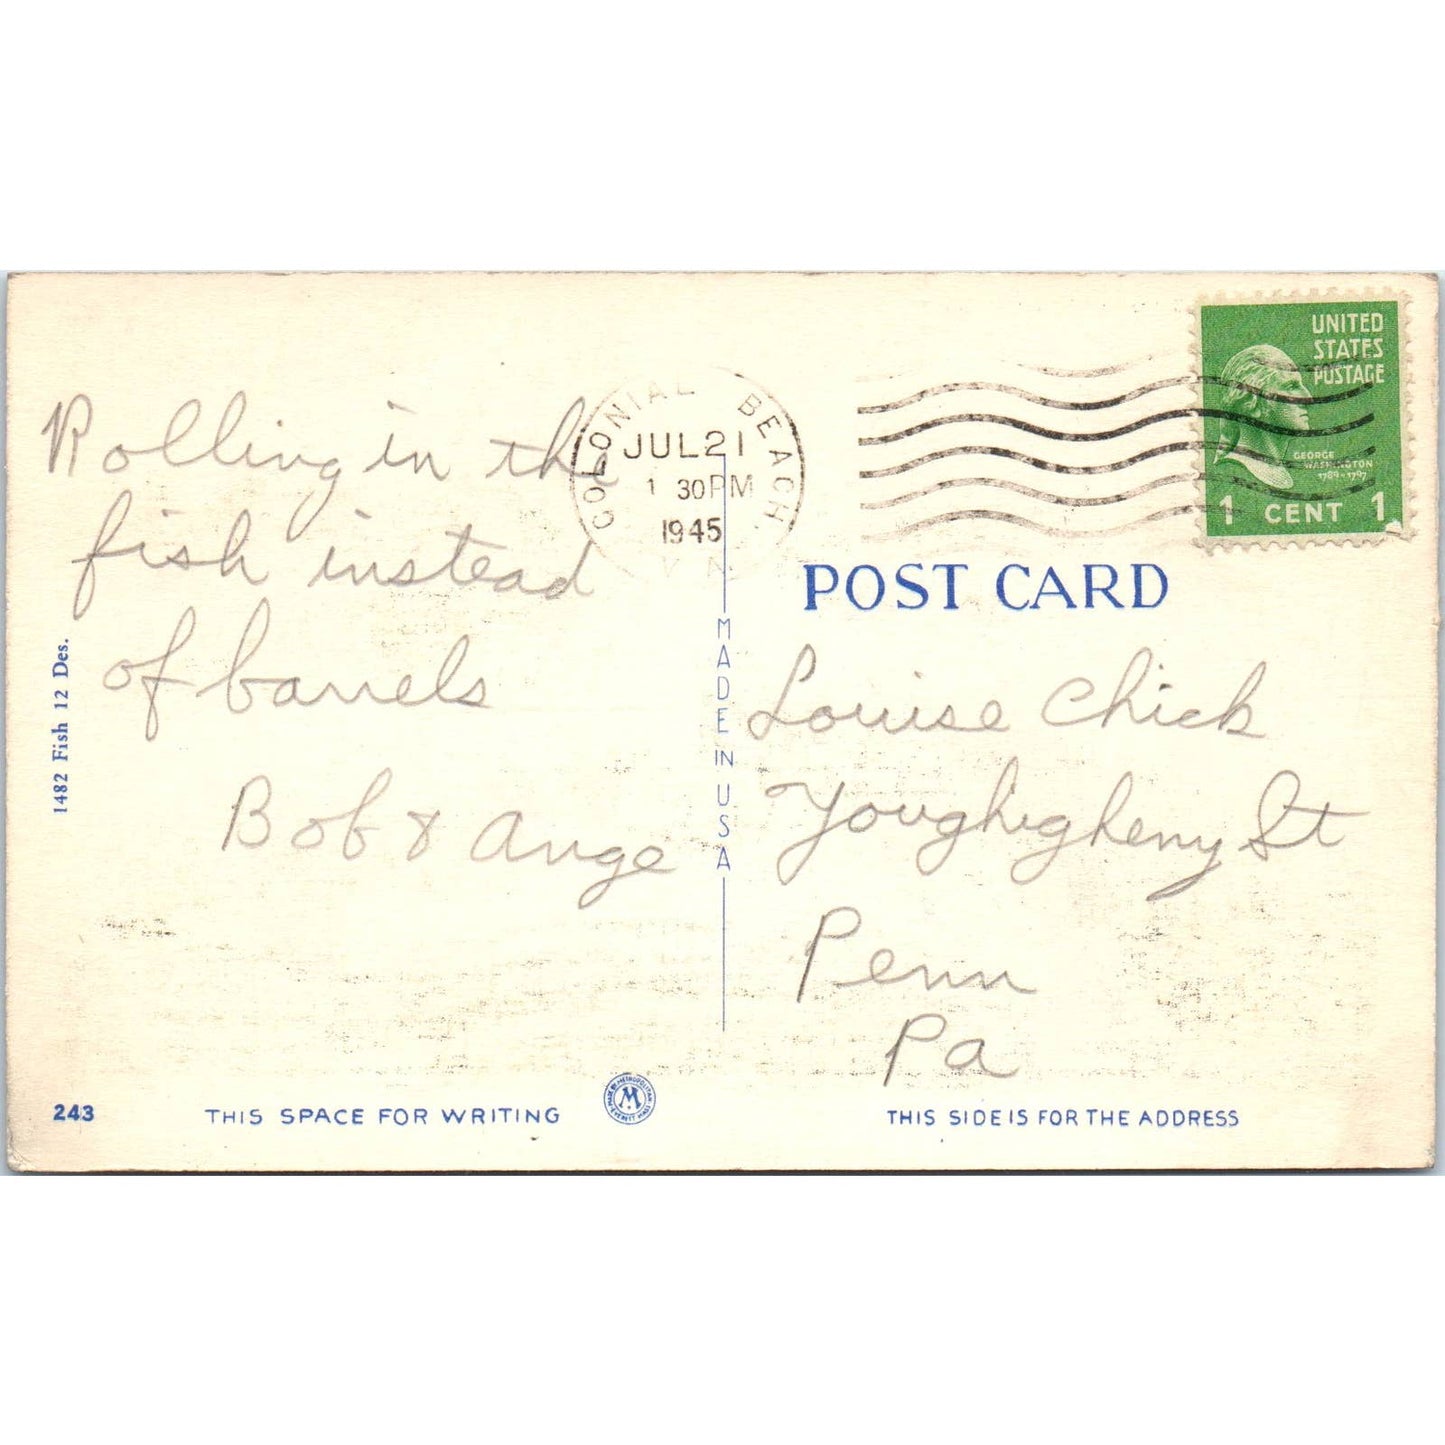 Rolling in the
fish instead
of barrels
Bob & Ange
1482 Fish 12 Des.
243
THIS SPACE FOR WRITING
MADE BY METROPOLITAN
EVERETT MASS
M
COLONIAL BEACH,
JUL 21
1 30 PM
1945
MADE IN USA
UNITED
STATES
POSTAGE
GEORGE
WASHINGTON
1789-1797
1 CENT 1
POST CARD
Louise Chick
Youghigheny St
Penn
Pa
THIS SIDE IS FOR THE ADDRESS